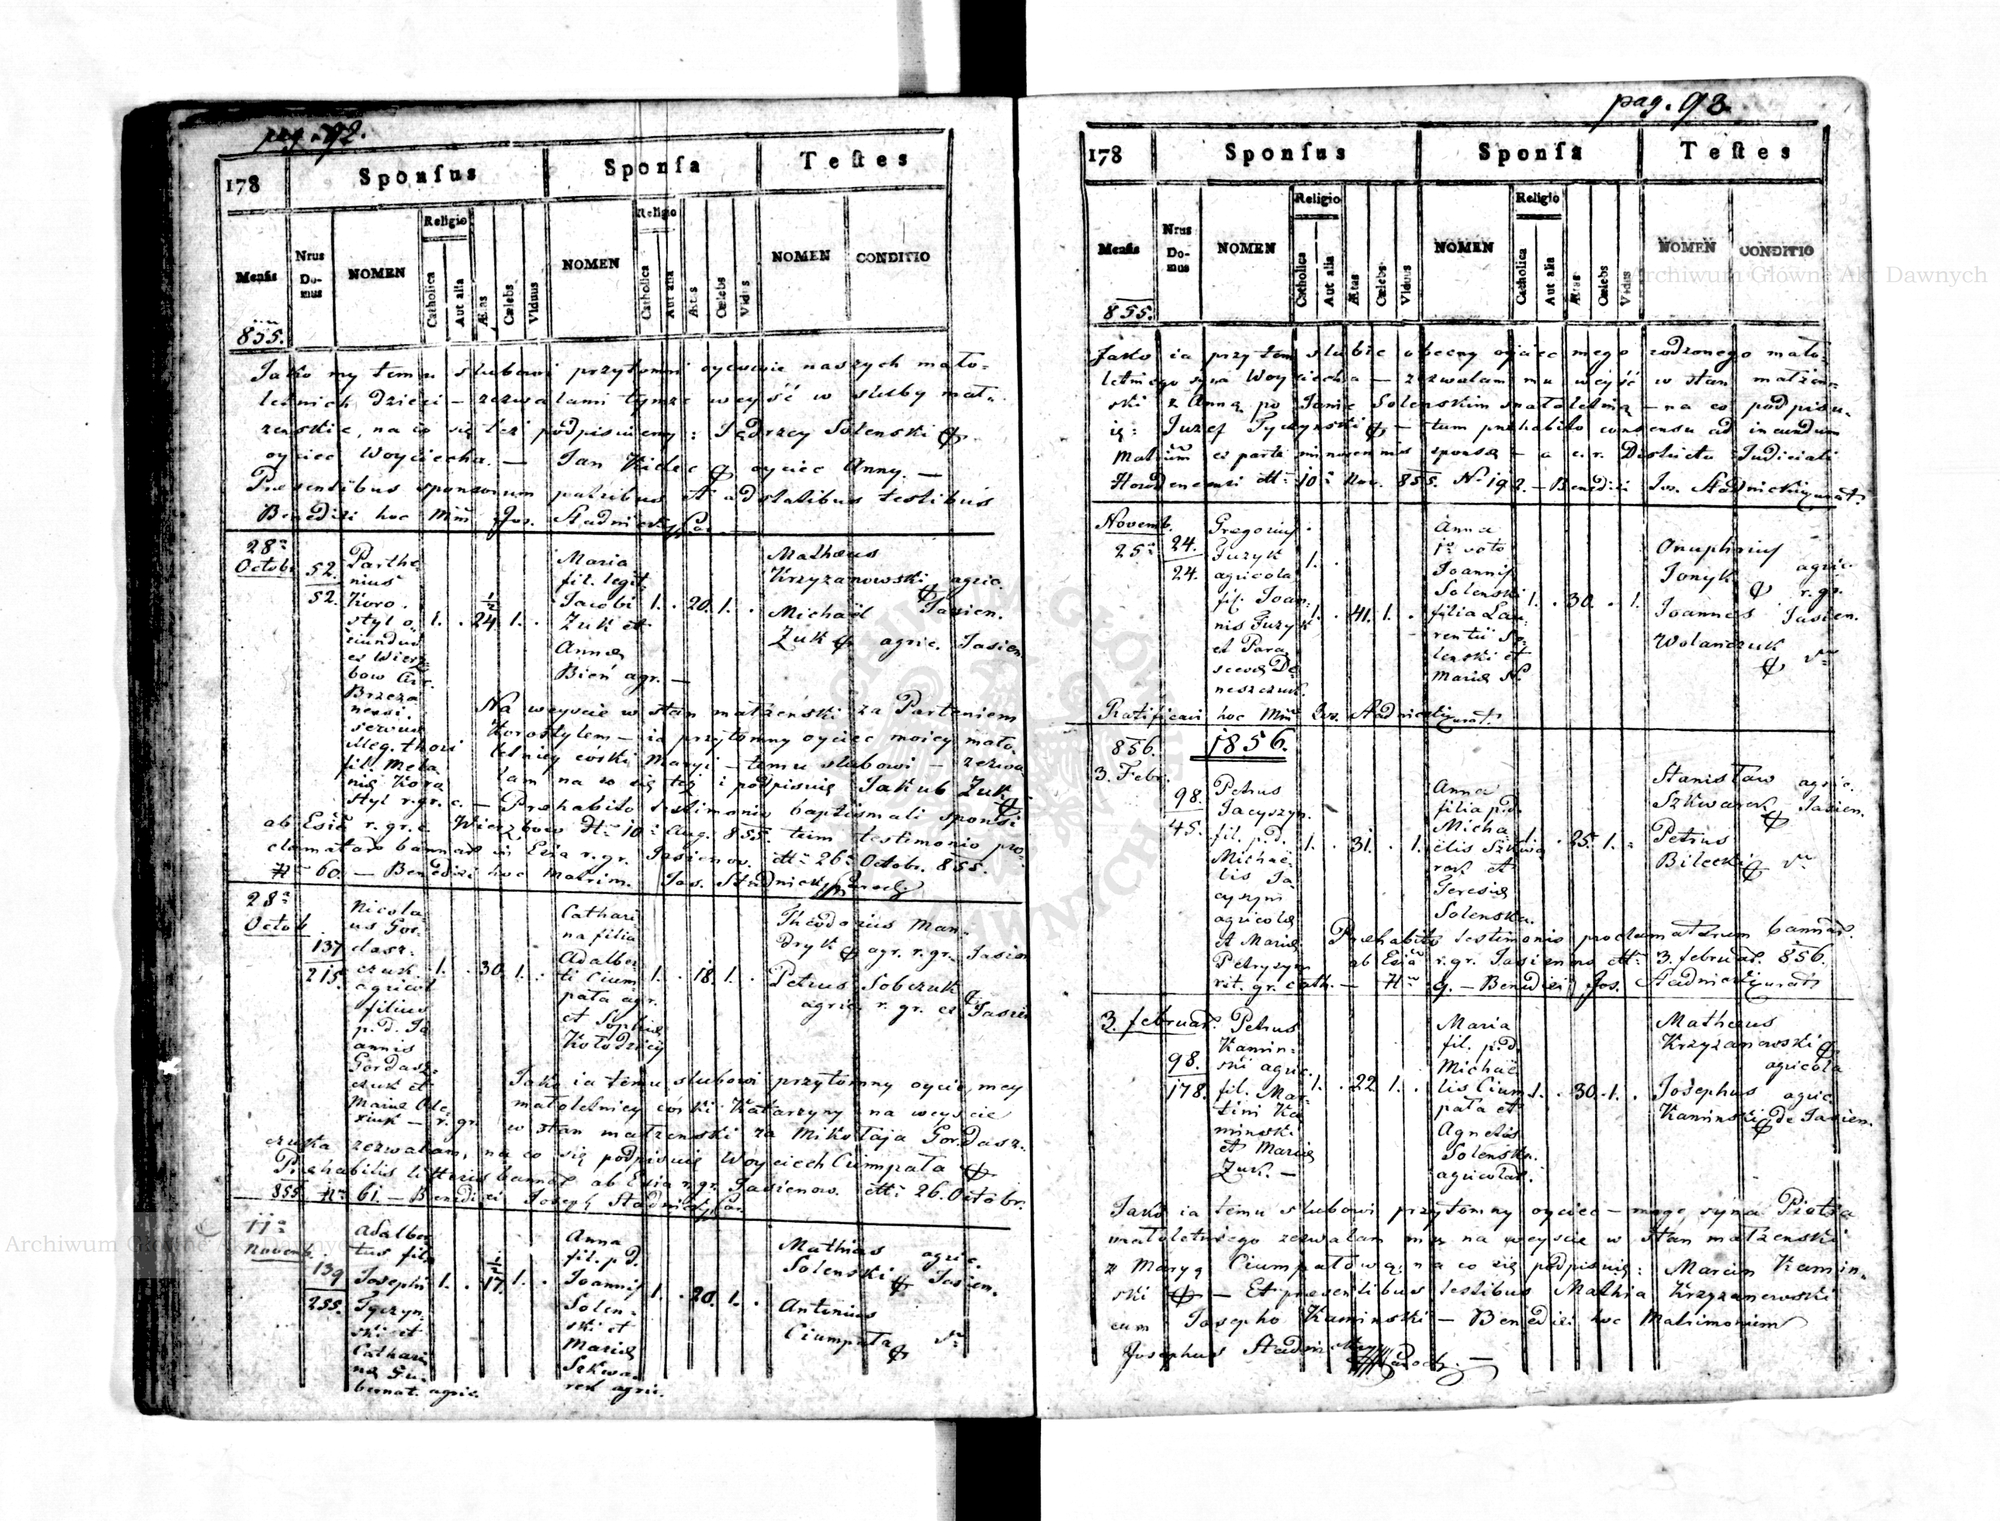 pag. 92.
178
Sponsus
Sponsa
Testes
Mensis
Nrus Domus
NOMEN
Religio
Catholica
Aut alia
Ætas
Cœlebs
Viduus
NOMEN
Religio
Catholica
Aut alia
Ætas
Cœlebs
Vidua
NOMEN
CONDITIO
855.
Jako my temu slubowi przytomni oycowie naszych mało-
letnich dzieci – zezwalami tymże weyść w śluby mał-
żenskie, na co się też podpisuiemy: Jędrzey Solenski
oyciec Woyciecha. — Jan Kielec oyciec Anny. —
Presentibus sponsorum patribus et adstatibus testibus
Benedixi hoc Mm Jos. Stadnicky
28a
Octobr
52.
52.
Parthe-
nius
Koro-
styl o-
riundus
ex Wierz-
bow Cir.
Brzeza
nensi.
servus
fil. Meta
nii Koro
styl r. gr. c.
1. 24 1.
Maria
fil. legit.
Jacobi
Zuk et
Annæ
Bień agr. —
1. 20. 1.
Mathæus
Krzyzanowski agric.
Jasien.
Michaël
Zuk agric. Jasien
Na weyscie w stan małżenski za Parteniem
Korostylem – ia przytomny oyciec moiey mało-
letniey córki Maryi – temu slubowi – zezwa-
lam na co się też i podpisuię Jakub Zuk
– Præhabito testimonio baptismali sponsi
ab Esia r. gr. c. Wierzbow dto 10a Aug. 855. tum testimonio pro-
clamatar bannar in Esia r. gr. Jasienov. dto 26a Octobr. 855.
Nro 60. – Benedixi hoc Matrim. Jos. Stadnicky Paroch
28a
Octob
137
215.
Nicola-
us Gor-
dasz-
czuk
agricol
filius
p. d. Jo
annis
Gordasz-
czuk et
Mariæ Ole-
xiuk – r. gr.
1. 30. 1.
Cathari-
na filia
Adalber-
ti Cium-
pała agr.
et Sophiæ
Kołodzicy
1. 18. 1.
Theodorius Man-
dryk agr. r. gr. Jasien
Petrus Sobczuk
agric. r. gr. ex Jasien
Jako ia temu slubowi przytomny oyciec mey
małoletniey córki Katarzyny na weyscie
w stan małżenski za Mikołaja Gordasz-
czuka zezwalam, na co się podpisuię Woyciech Ciumpała
Præhabitis litteris bannal ab Esia r. gr. Jasienow. dto 26. Octobr.
855 Nro 61. – Benedixi Joseph Stadnicky Par.
11a
Novemb.
139
255.
Adalber-
tus filus
Josephi
Tyczyn-
ski et
Cathari
na Gu-
bernat. agric.
1. 17. 1.
Anna
fil. p. d.
Joannis
Solen-
ski et
Mariæ
Szkwa-
rek agric.
1. 20. 1.
Mathias agric.
Solenski Jasien.
Antonius
Ciumpała
pag. 93
178
Sponsus
Sponsa
Testes
Mensis
Nrus Domus
NOMEN
Religio
Catholica
Aut alia
Ætas
Cœlebs
Viduus
NOMEN
Religio
Catholica
Aut alia
Ætas
Cœlebs
Vidua
NOMEN
CONDITIO
855.
Jako ia przytem slubie obecny oyciec mego rodzonego mało-
letniego syna Woyciecha – zezwalam mu weyść w stan małżen-
ski z Anną po Janie Solenskim małoletnią – na co podpisu-
ię: Juzef Tyczynski – tum præhabito consensu ad ineundum
Matrim ex parte minorennis sponsæ – a c. r. Districtu Judiciali
Horodenensi dto 10a Nov. 855. No 192. – Benedixi Jos. Stadnicki
Novemb.
25a
24.
24.
Gregorius
Juzyk
agricola
fil. Joan-
nis Juzyk
et Para
scevæ De-
neszczuk.
1. 41. 1.
Anna
1o voto
Joannis
Solenski
filia Lau-
rentii So-
lenski et
Mariæ N.
1. 30. 1.
Onuphrius
Jonyk agric.
r. gr.
Joannes Jasien.
Wolanczuk
Ratificavi hoc Mm Jos. Stadnicki
856. 1856.
3. Febr.
98.
45.
Petrus
Jacyszyn.
fil. p. d.
Michaë-
lis Ja-
cyszyn
agricolæ
et Mariæ
Petryszyn
rit. gr. cath. –
1. 31. 1.
Anna
filia p. d.
Micha
ëlis Szkwa
rek et
Teresiæ
Solenska.
1. 25. 1.
Stanisław agric.
Szkwarek Jasien.
Petrus
Bilecki
Præhabito testimonio proclamatarum bannar.
ab Esia r. gr. Jasienow dto 3. februar. 856.
Nro 9. – Benedixi Jos. Stadnicki
3. februar.
98.
178.
Petrus
Kamin-
ski agric.
fil. Mar-
tini Ka
minski
et Mariæ
Zuk. –
1. 22. 1.
Maria
fil. p. d.
Michaë
lis Cium
pała et
Agnetis
Solenska.
agricolar.
1. 30. 1.
Mathæus
Krzyzanowski
agricola
Josephus agric.
Kaminski de Jasien.
Jako ia temu slubowi przytomny oyciec – mego syna Piotra
małoletniego zezwalam mu na weyscie w stan małżenski
z Maryą Ciumpałową; na co się podpisuię: Marcin Kamin-
ski – Et presentibus testibus Mathia Krzyzanowski
cum Josepho Kaminski – Benedixi hoc Matrimonium
Josephus Stadnicky Paroch. –
Archiwum Główne Akt Dawnych
Archiwum Główne Akt Dawnych
ARCHIWUM GŁÓWNE AKT DAWNYCH